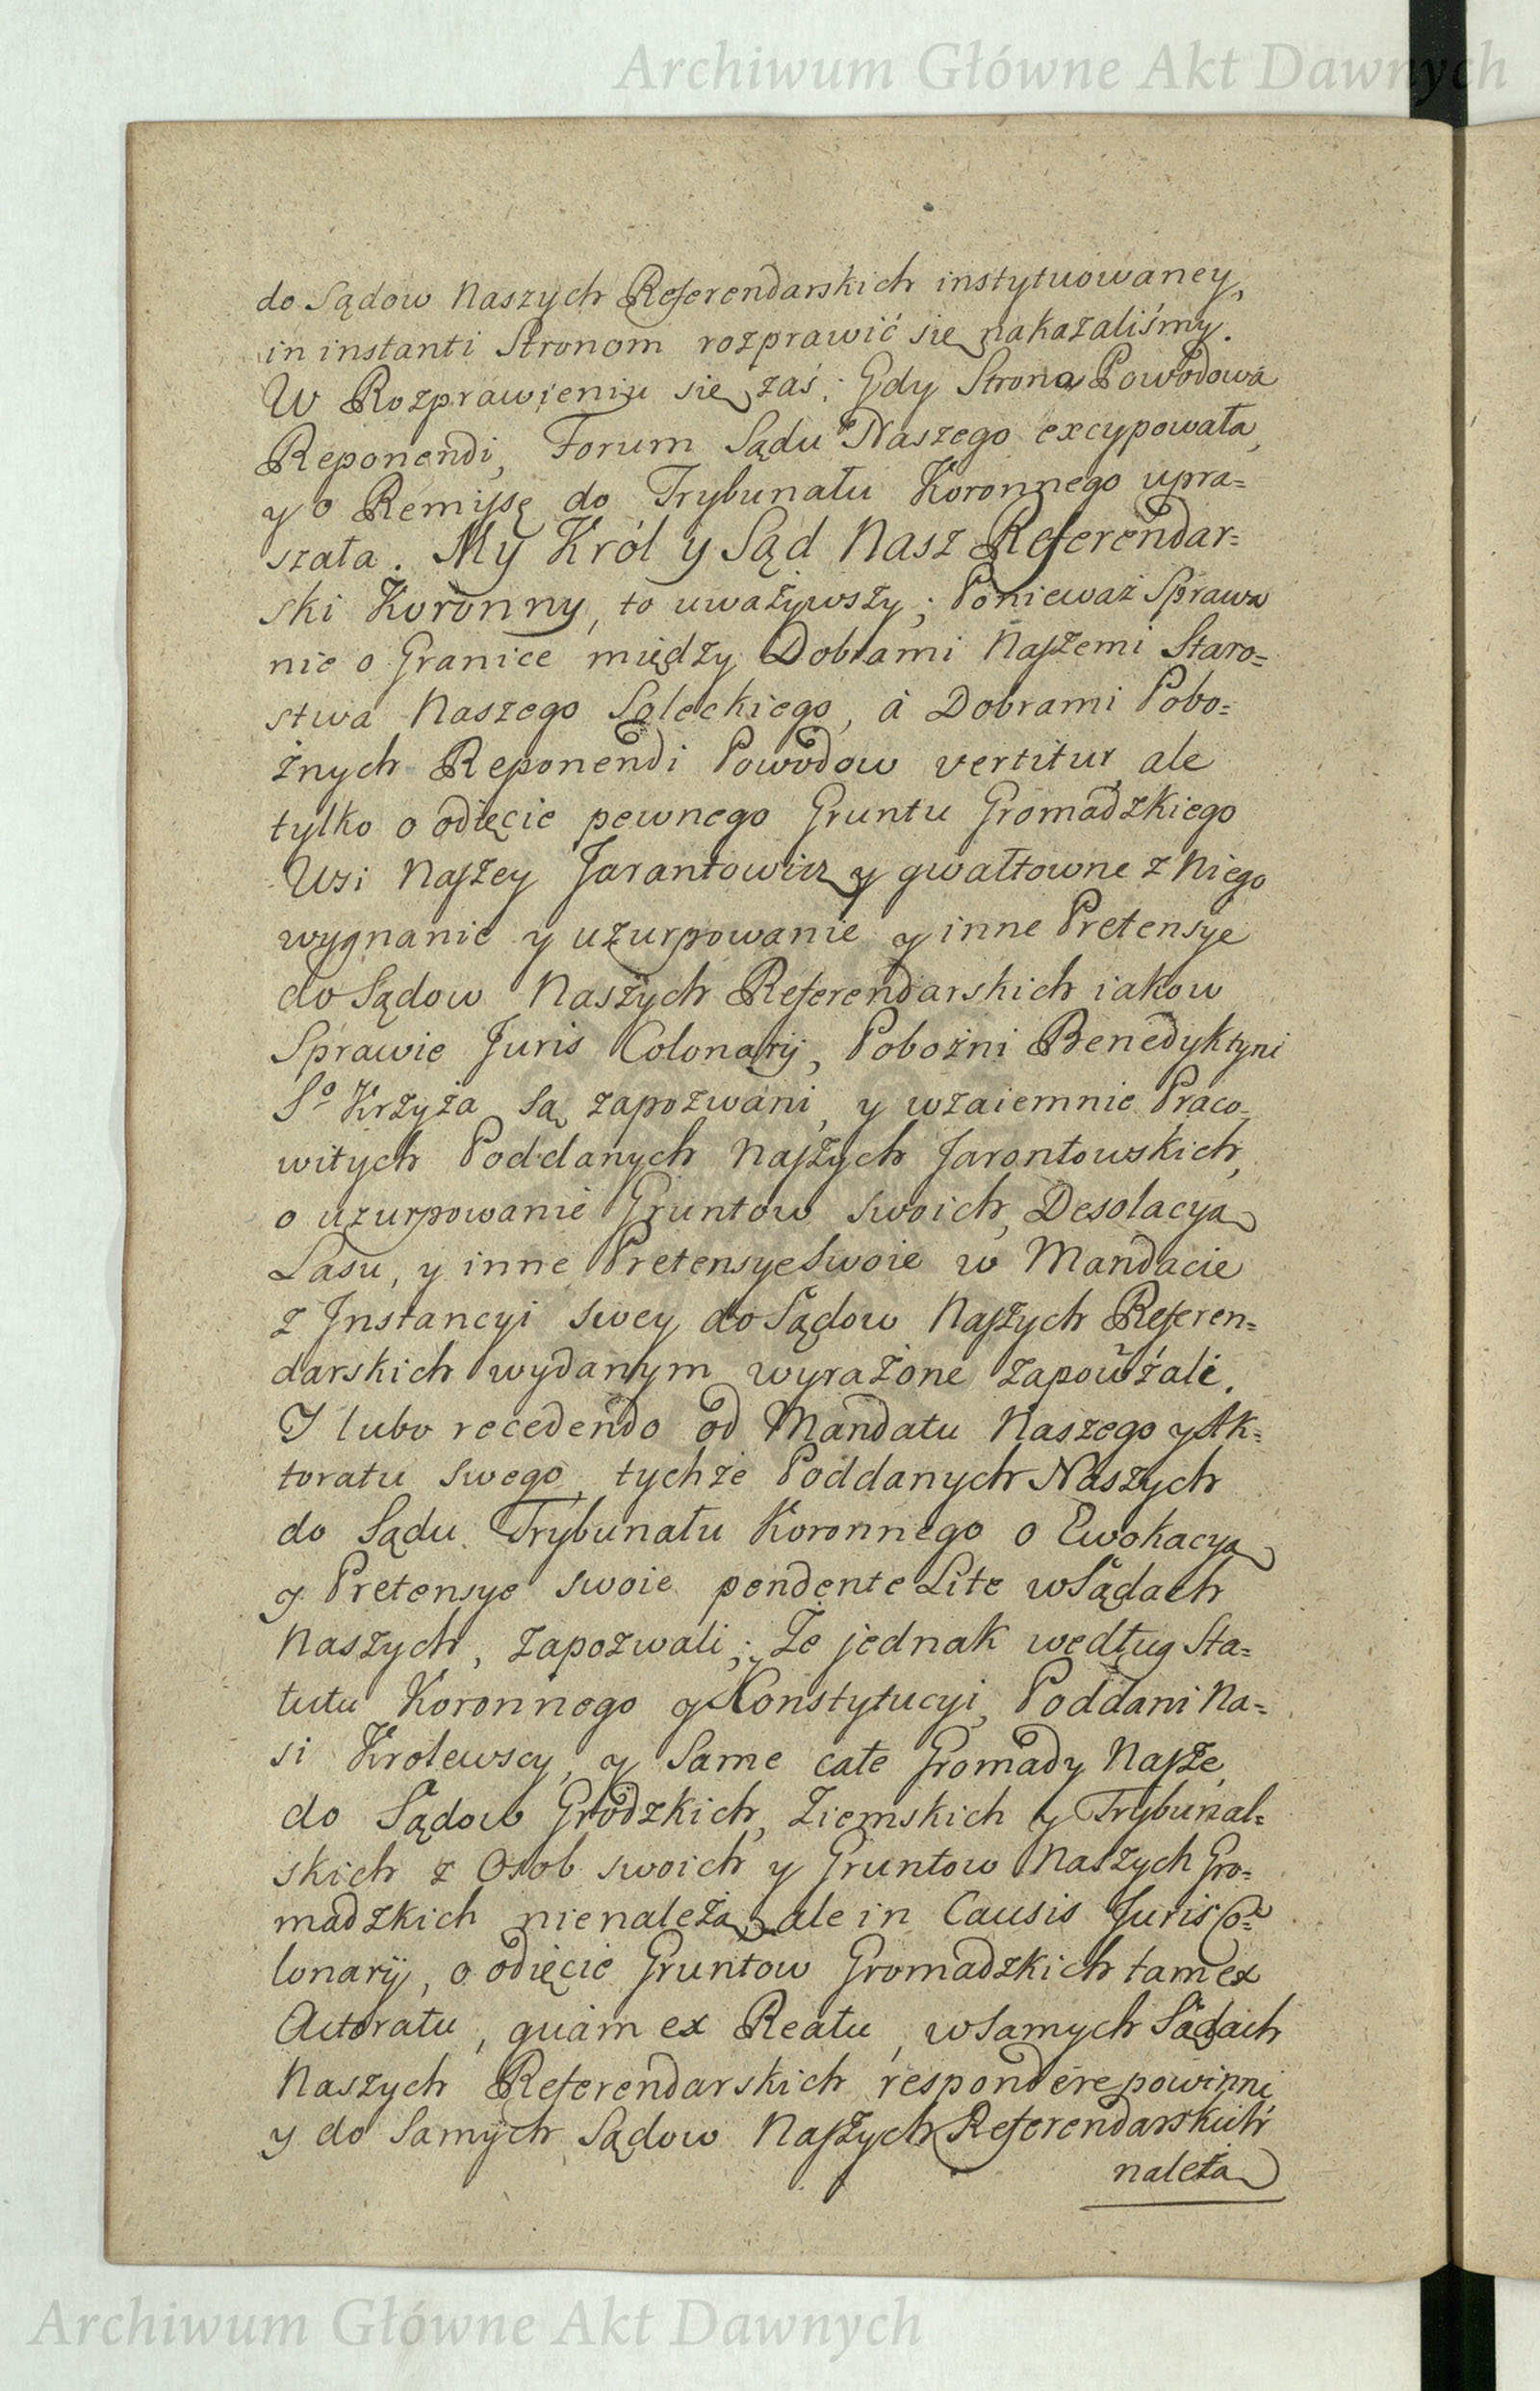 Archiwum Główne Akt Dawnych
do Sądow Naszych Referendarskich instytuowaney,
in instanti Stronom rozprawić się nakazaliśmy.
W Rozprawieniu się zaś; Gdy Strona Powodowa
Reponendi, Forum Sądu Naszego excypowała,
y o Remissę do Trybunału Koronnego upra=
szała. My Król y Sąd Nasz Referendar=
ski Koronny, to uważywszy; Ponieważ Sprawa
nie o Granice między Dobrami Naszemi Staro=
stwa Naszego Soleckiego, á Dobrami Pobo=
żnych Reponendi Powodow vertitur, ale
tylko o odięcie pewnego Gruntu Gromadzkiego
Wsi Naszey Jarantowicz y gwałtowne z Niego
wygnanie y uzurpowanie y inne Pretensye
do Sądow Naszych Referendarskich iako w
Sprawie Juris Colonarij, Pobożni Benedyktyni
So Krzyża są zapozwani, y wzaiemnie Praco=
witych Poddanych Naszych Jarontowskich,
o uzurpowanie Gruntow swoich, Desolacyą
Lasu, y inne Pretensye Swoie w Mandacie
z Instancyi swey do Sądow Naszych Referen=
darskich wydanym wyrażone zapowżali.
I lubo recedendo od Mandatu Naszego y Ak=
toratu swego, tychże Poddanych Naszych
do Sądu Trybunału Koronnego o Ewokacyą
y Pretensye swoie pendente Lite w Sądach
Naszych, zapozwali; Że jednak według Sta=
tutu Koronnego y Konstytucyi, Poddani Na=
si Krolewscy, y Same całe Gromady Nasze,
do Sądow Grodzkich, Ziemskich y Trybunal=
skich z Osob swoich y Gruntow Naszych Gro=
madzkich nienależą, ale in Causis Juris Co=
lonarij, o odięcie Gruntow Gromadzkich tam ex
Actoratu, quam ex Reatu, w Samych Sądach
Naszych Referendarskich respondere powinni
y do Samych Sądow Naszych Referendarskich
należą
Archiwum Główne Akt Dawnych